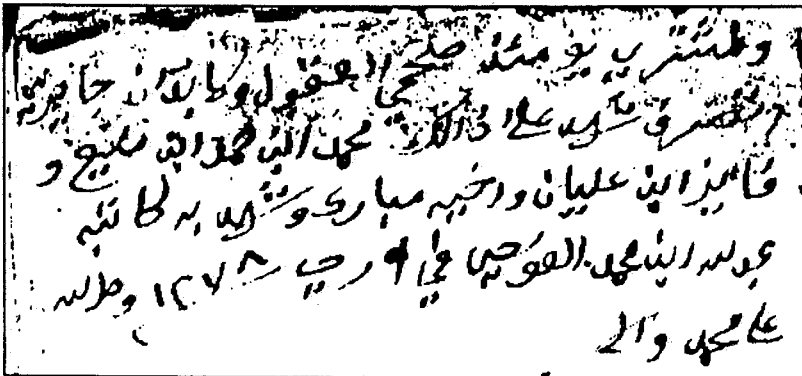 ومشتري يومئذ صحيحي العقول وكاملان جايزين
التصرف شهد على ذالك محمد ابن حمد ابن مليح و
فايز ابن عليان واخيه مبارك وشهد به كاتبه
عبدلله ابن محمد العوجي في ٩ رجب ١٢٧٨ وصلى الله
على محمد واله